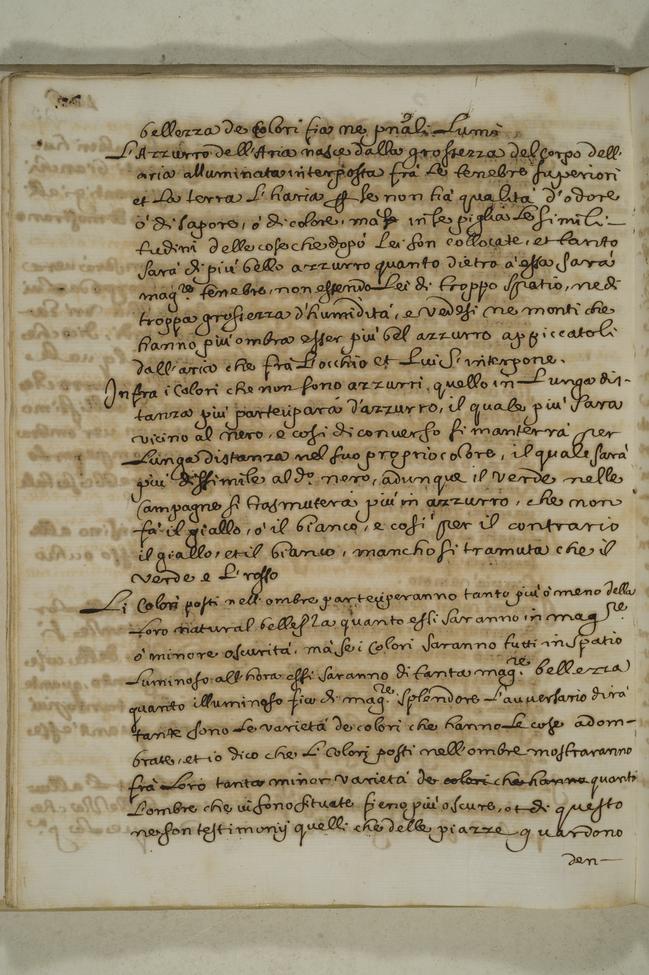 bellezza de Colori sia ne pnãli Lumi
L'Azzurro dell'Aria nasce dalla grossezza del corpo dell'
aria alluminata interposta fra le tenebre superiori
et La terra L'haria p se non hà qualità d'odore
ò di sapore, ò di colore, mà in se piglia Le simili-
tudini delle cose che dopò Lei son collocate, et tanto
sarà di più bello azzurro quanto dietro à essa sarà
mag.re tenebre, non essendo Lei di troppo spatio, ne di
troppa grossezza d'humidità, e vedesi ne monti che
hanno più ombra esser più bel azzurro appiccatoli
dall'aria che frà L'occhio et Lui s'interpone.
Infra i Colori che non sono azzurri, quello in Lunga dis-
tanza più parteciparà d'azzurro, il quale più sarà
vicino al nero, e così di converso si manterrà per
Lunga distanza nel suo proprio colore, il quale sarà
più dissimile al d.o nero, adunque il verde nelle
campagne si trasmuterà più in azzurro, che non
fà il giallo, ò il bianco, e così per il contrario
il giallo, et il bianco, mancho si tramuta che il
verde e L'rosso
Li Colori posti nell'ombre parteciperanno tanto più ò meno della
Loro natural bellezza quanto essi saranno in mag.re
ò minore oscurità, mà se i Colori saranno tutti in spatio
Luminoso all'hora essi saranno di tanta mag.re bellezza
quanto illuminoso sia di mag.re splendore L'avversario dirà
tante sono Le varietà de colori che hanno Le cose adom-
brate, et io dico che Li Colori posti nell'ombre mostraranno
frà Loro tanta minor varietà de colori che hanno quanto
L'ombre che vi sono situate sieno più oscure, et di questo
ne son testimonij quelli che delle piazze guardono
den-